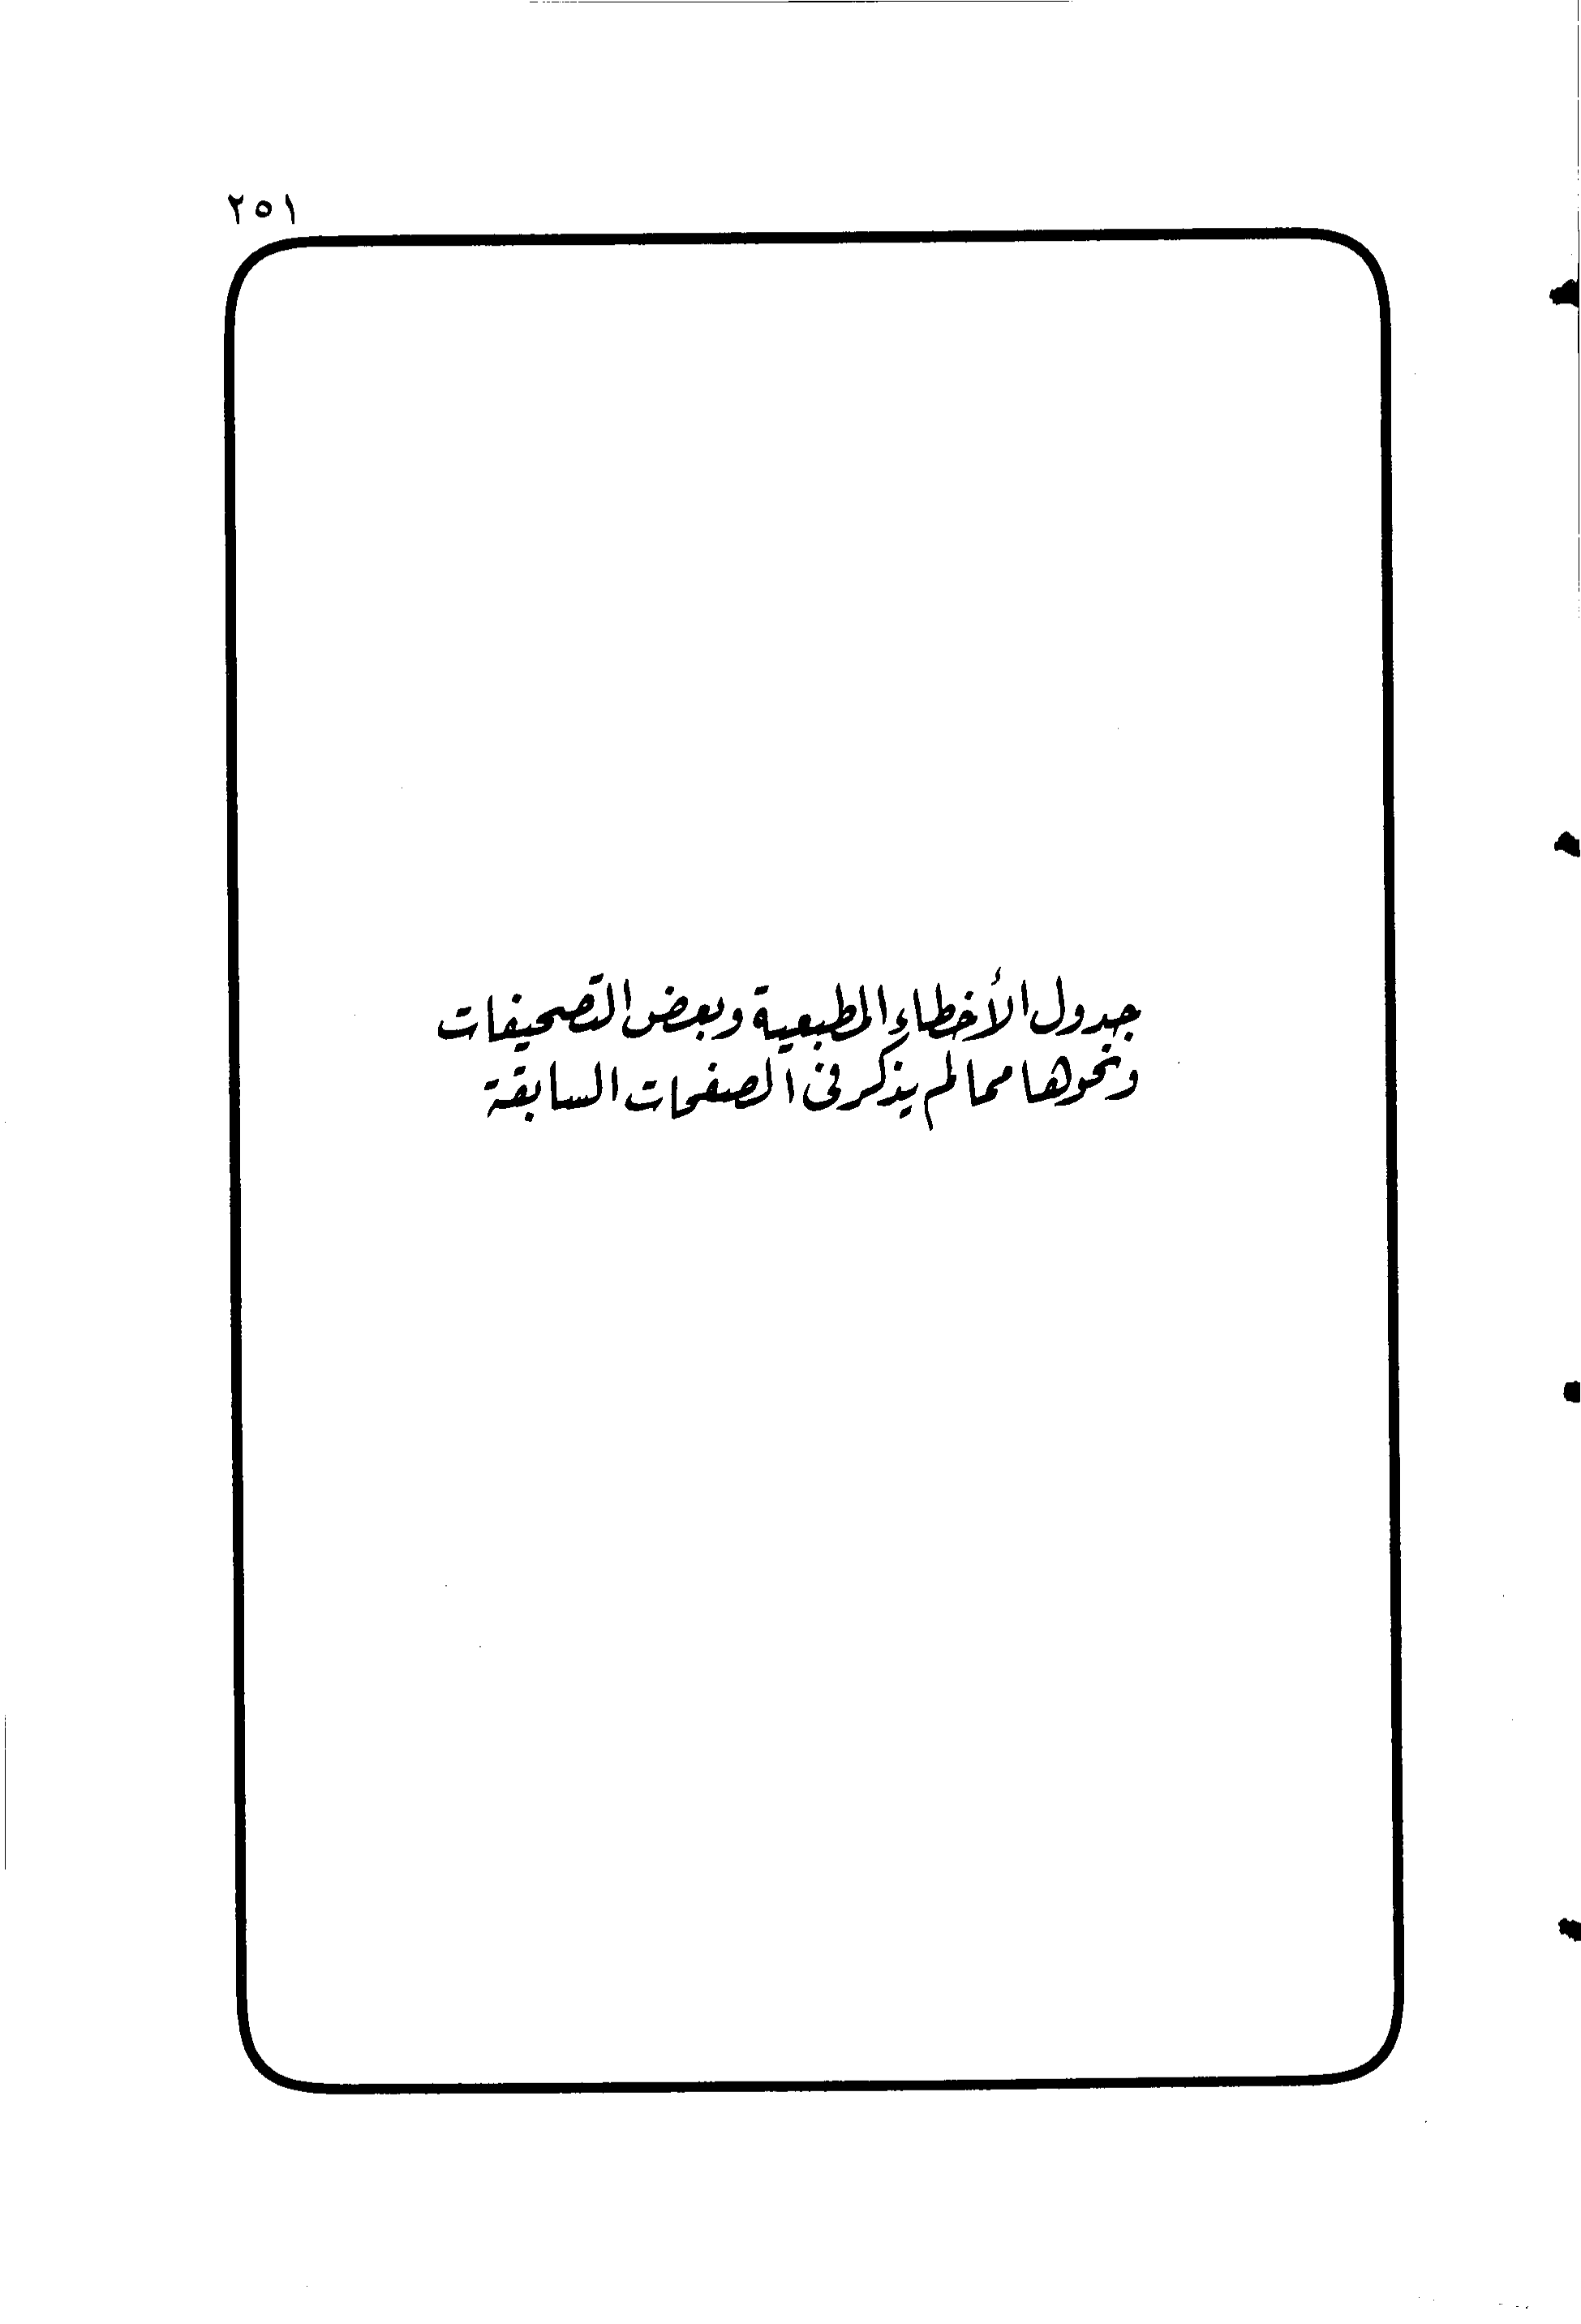 ٢٥١
جدول الأخطاء المطبعية وبعض التصحيفات
ونحوها مما لم يذكر في الصفحات السابقة